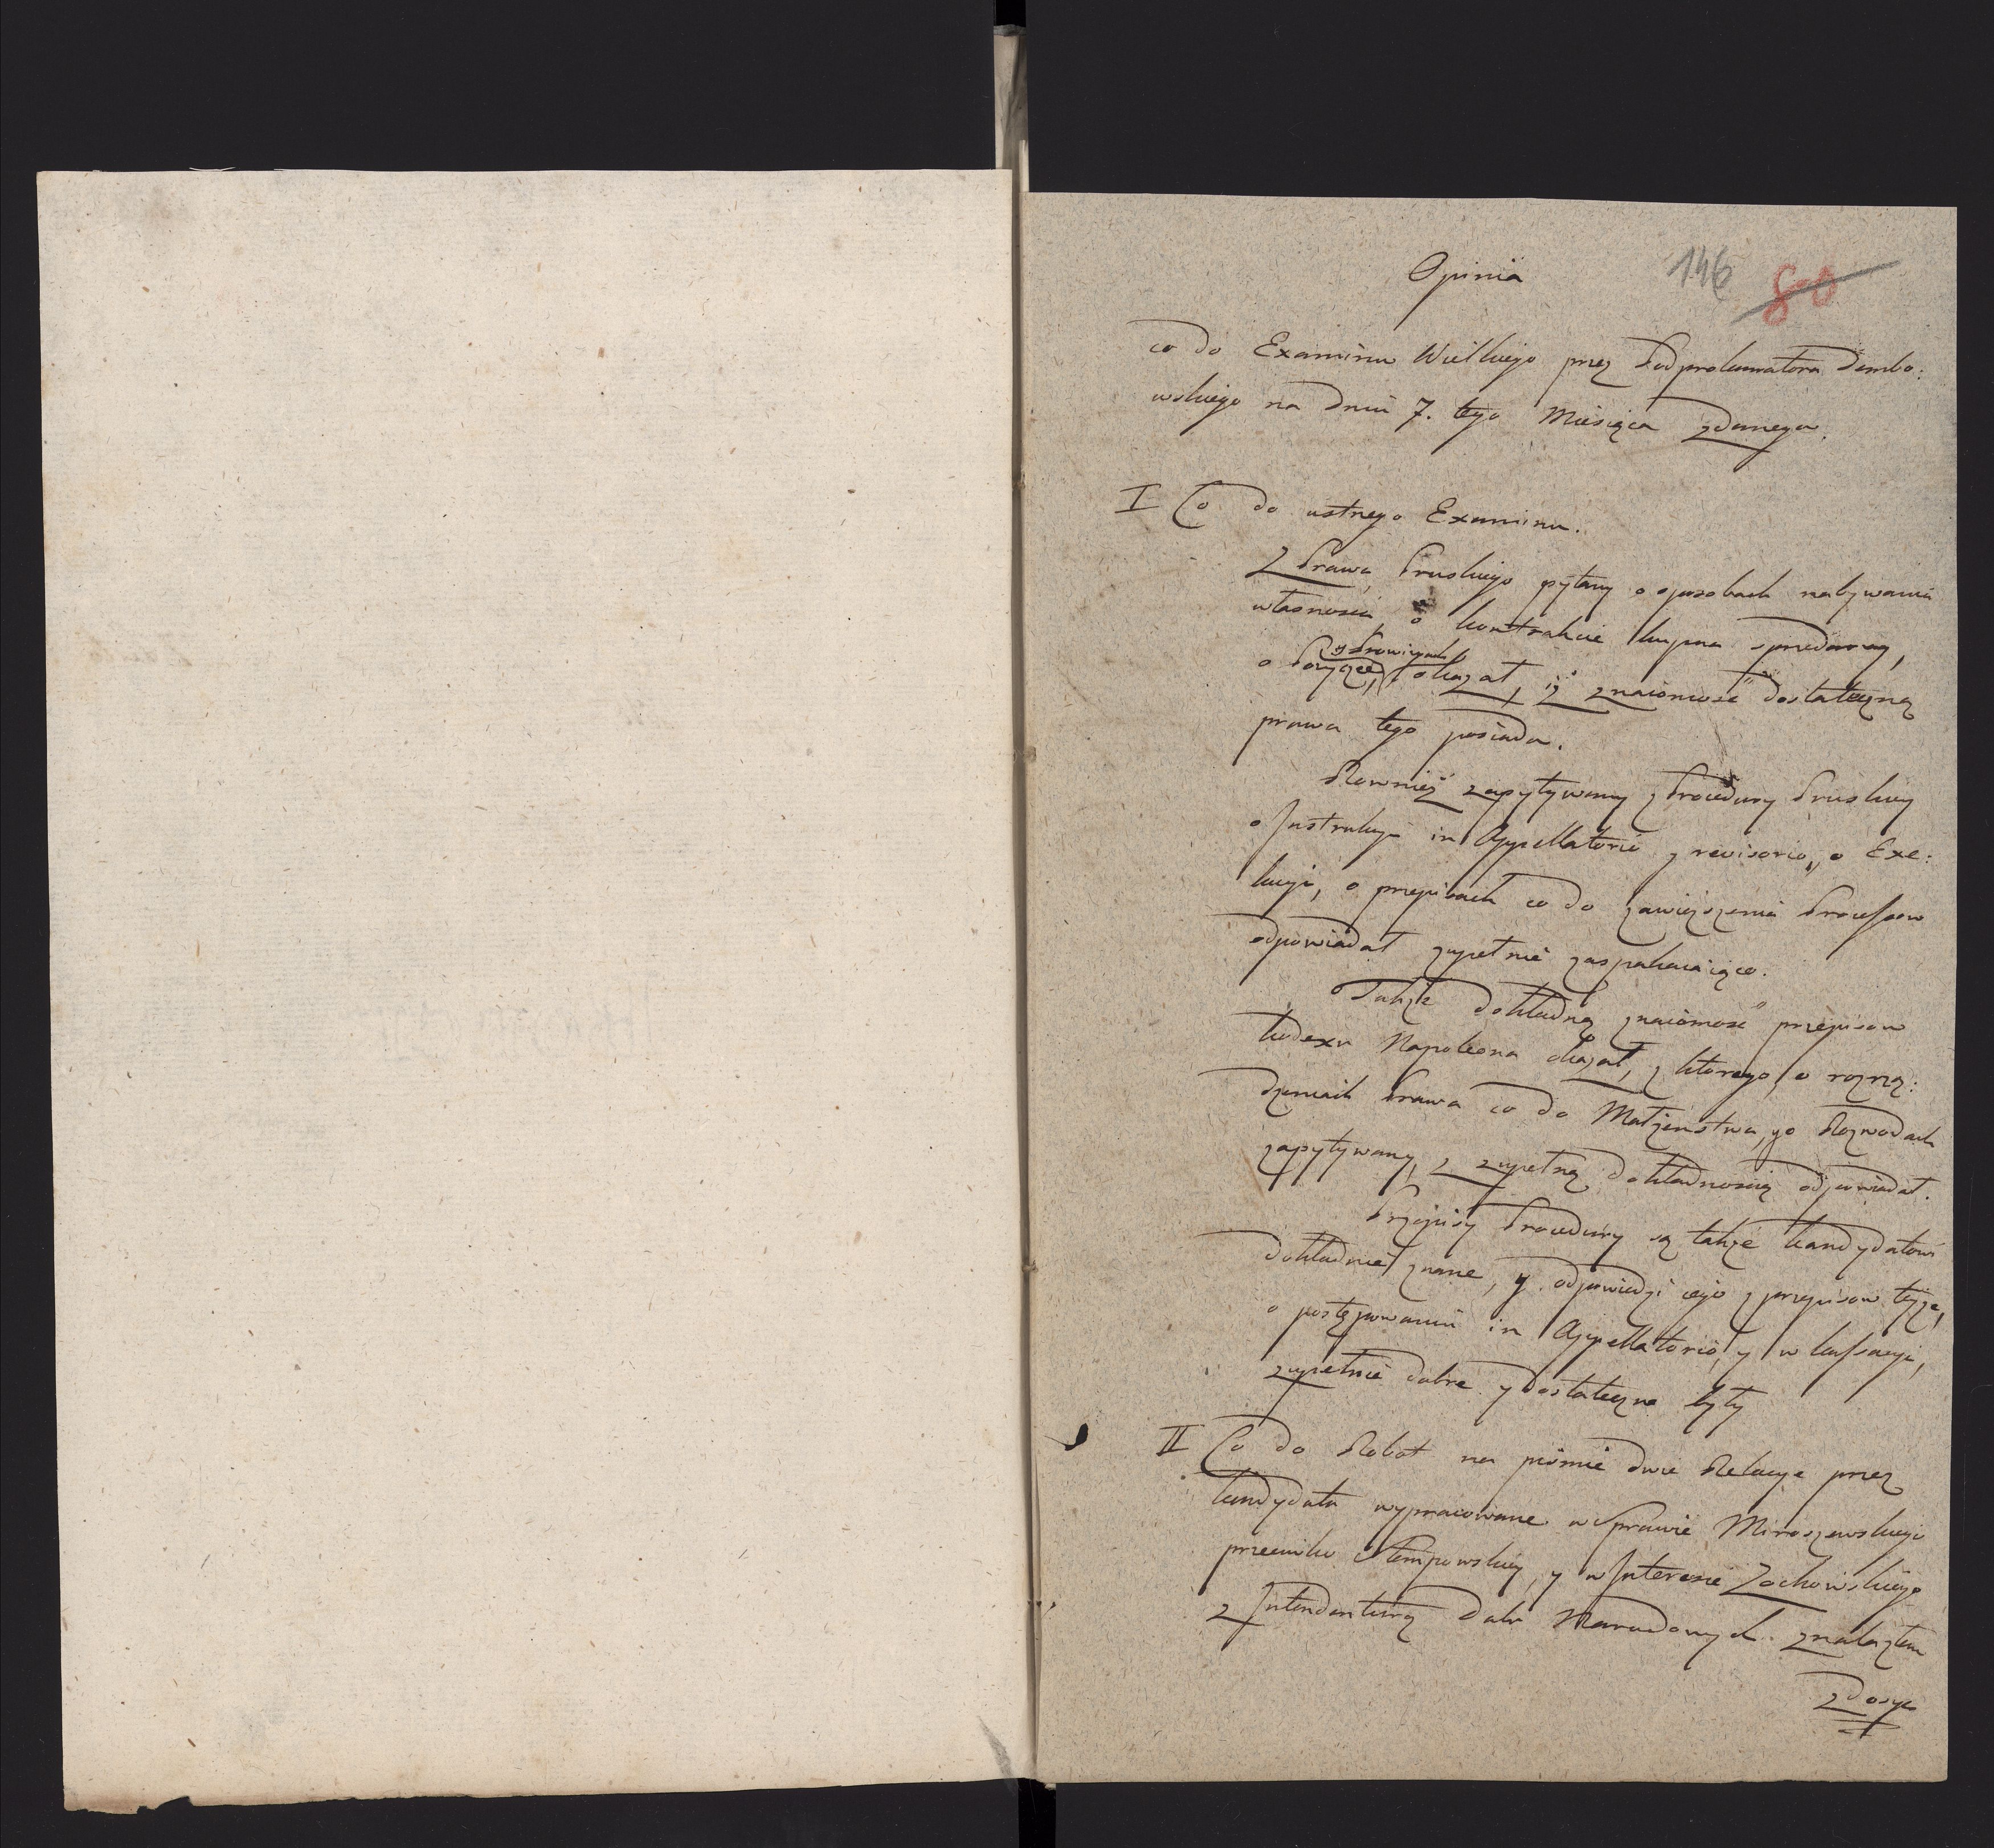 Opinia
146 80
co do Examinu Wielkiego przez Podprokuratora Dembo:
wskiego na dniu 7. tego Miesiąca zdanego.
I Co do ustnego Examinu.
Z Prawa Pruskiego pytany o sposobach nabywania
własności, o kontrakcie kupna sprzedarzy,
o Pozyczce, okazał, iż znaiomość dostateczną
prawa tego posiada.
Rownież zapytywany z Procedury Pruskiey
o Instrukcyi in Appellatorio y revisorio, o Exe:
kucyi, o przepisach co do zawieszenia Processow
odpowiadał zupełnie zaspakaiaiąco.
Także dokładną znaiomość przepisow
kodexu Napoleona okazał, z ktorego, o rozrzą:
dzeniach Prawa co do Małżenstwa, y o Rozwodach
zapytywany, z zupełną dokładnością odpowiadał.
Przepisy Procedury są także kandydatowi
dokładnie znane, y odpowiedzi iego z przepisow teyże,
o postępowaniu in Appellatorio, y w kassacyi,
zupełnie dobre y dostateczne były
II Co do Robot na pismie dwie Relacye przez
kandydata wypracowane w Sprawie Miroszewskiego
przeciwko Stempowskiey, y w Interesie Zochowskiego
z Intendenturą Dobr Narodowych znalazłem
z dosyć